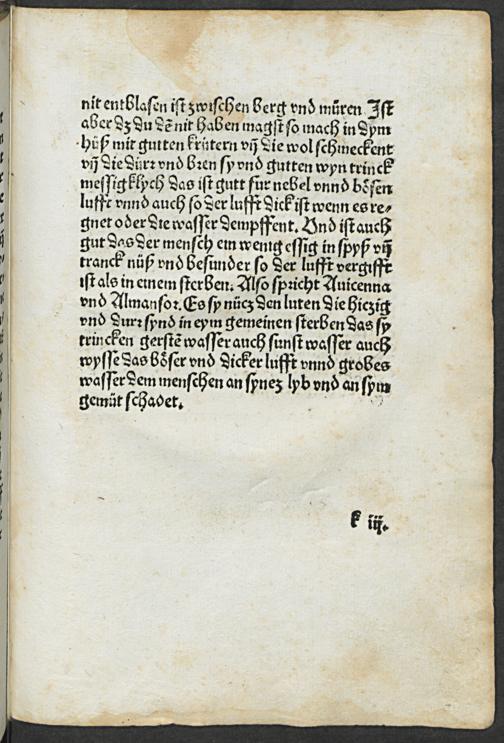 nit entblasen ist zwischen berg vnd müren Ist
aber dz du dz̄ nit haben magst so mach in dym
hüß mit gutten krütern vn̄ die wol schmeckent
vn̄ die dürr vnd bren sy vnd gutten wyn trinck
messigklych das ist gutt fur nebel vnnd bösen
lufft vnnd auch so der lufft dick ist wenn es re⸗
gnet oder die wasser dempffent. Vnd ist auch
gut das der mensch ein wenig essig in spyß vn̄
tranck nüß vnd besunder so der lufft vergifft
ist als in einem sterben. Also spricht Auicenna
vnd Almansor. Es sy nücz den luten die hiczig
vnd durr synd in eym gemeinen sterben das sy
trincken gerstē wasser auch sunst wasser auch
wysse das böser vnd dicker lufft vnnd grobes
wasser dem menschen an synez lyb vnd an sym
gemüt schadet.
k iij.